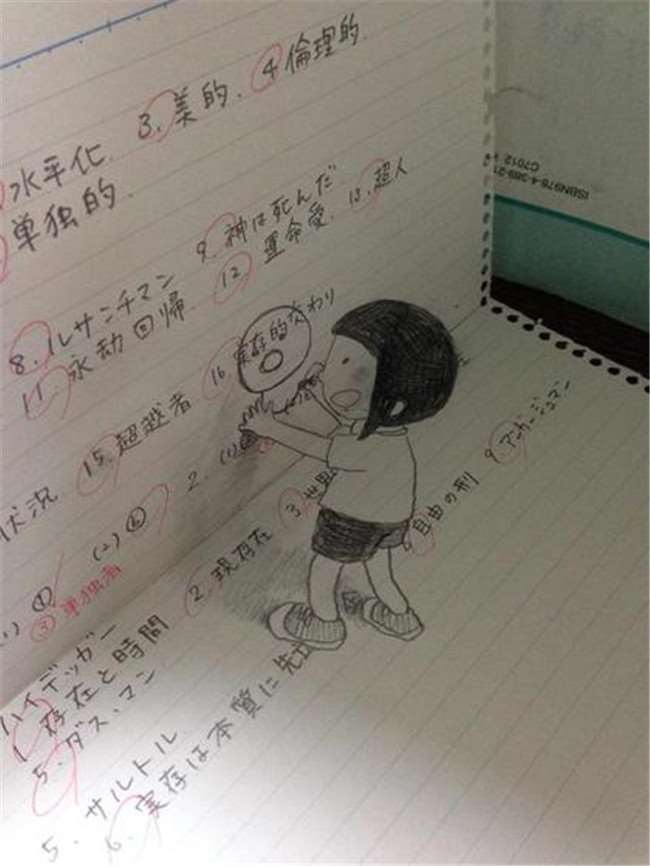 3. 美的. 4 倫理的.
水平化.
単独的.
8. ルサンチマン 9. 神は死んだ
11. 永劫回帰 12 運命愛. 13. 超人
状況 15. 超越者 16. 実存的交わり
(1) ④ (2) ⑥ 2. (1)
③ 単独者
ハイデッガー
1. 存在と時間 2. 現存在 3. 世界
5. ダス・マン
サルトル
5. 6. 実存は本質に先立 自由の刑 9. アンガージュマン
ISBN978-4-389-21
C7012